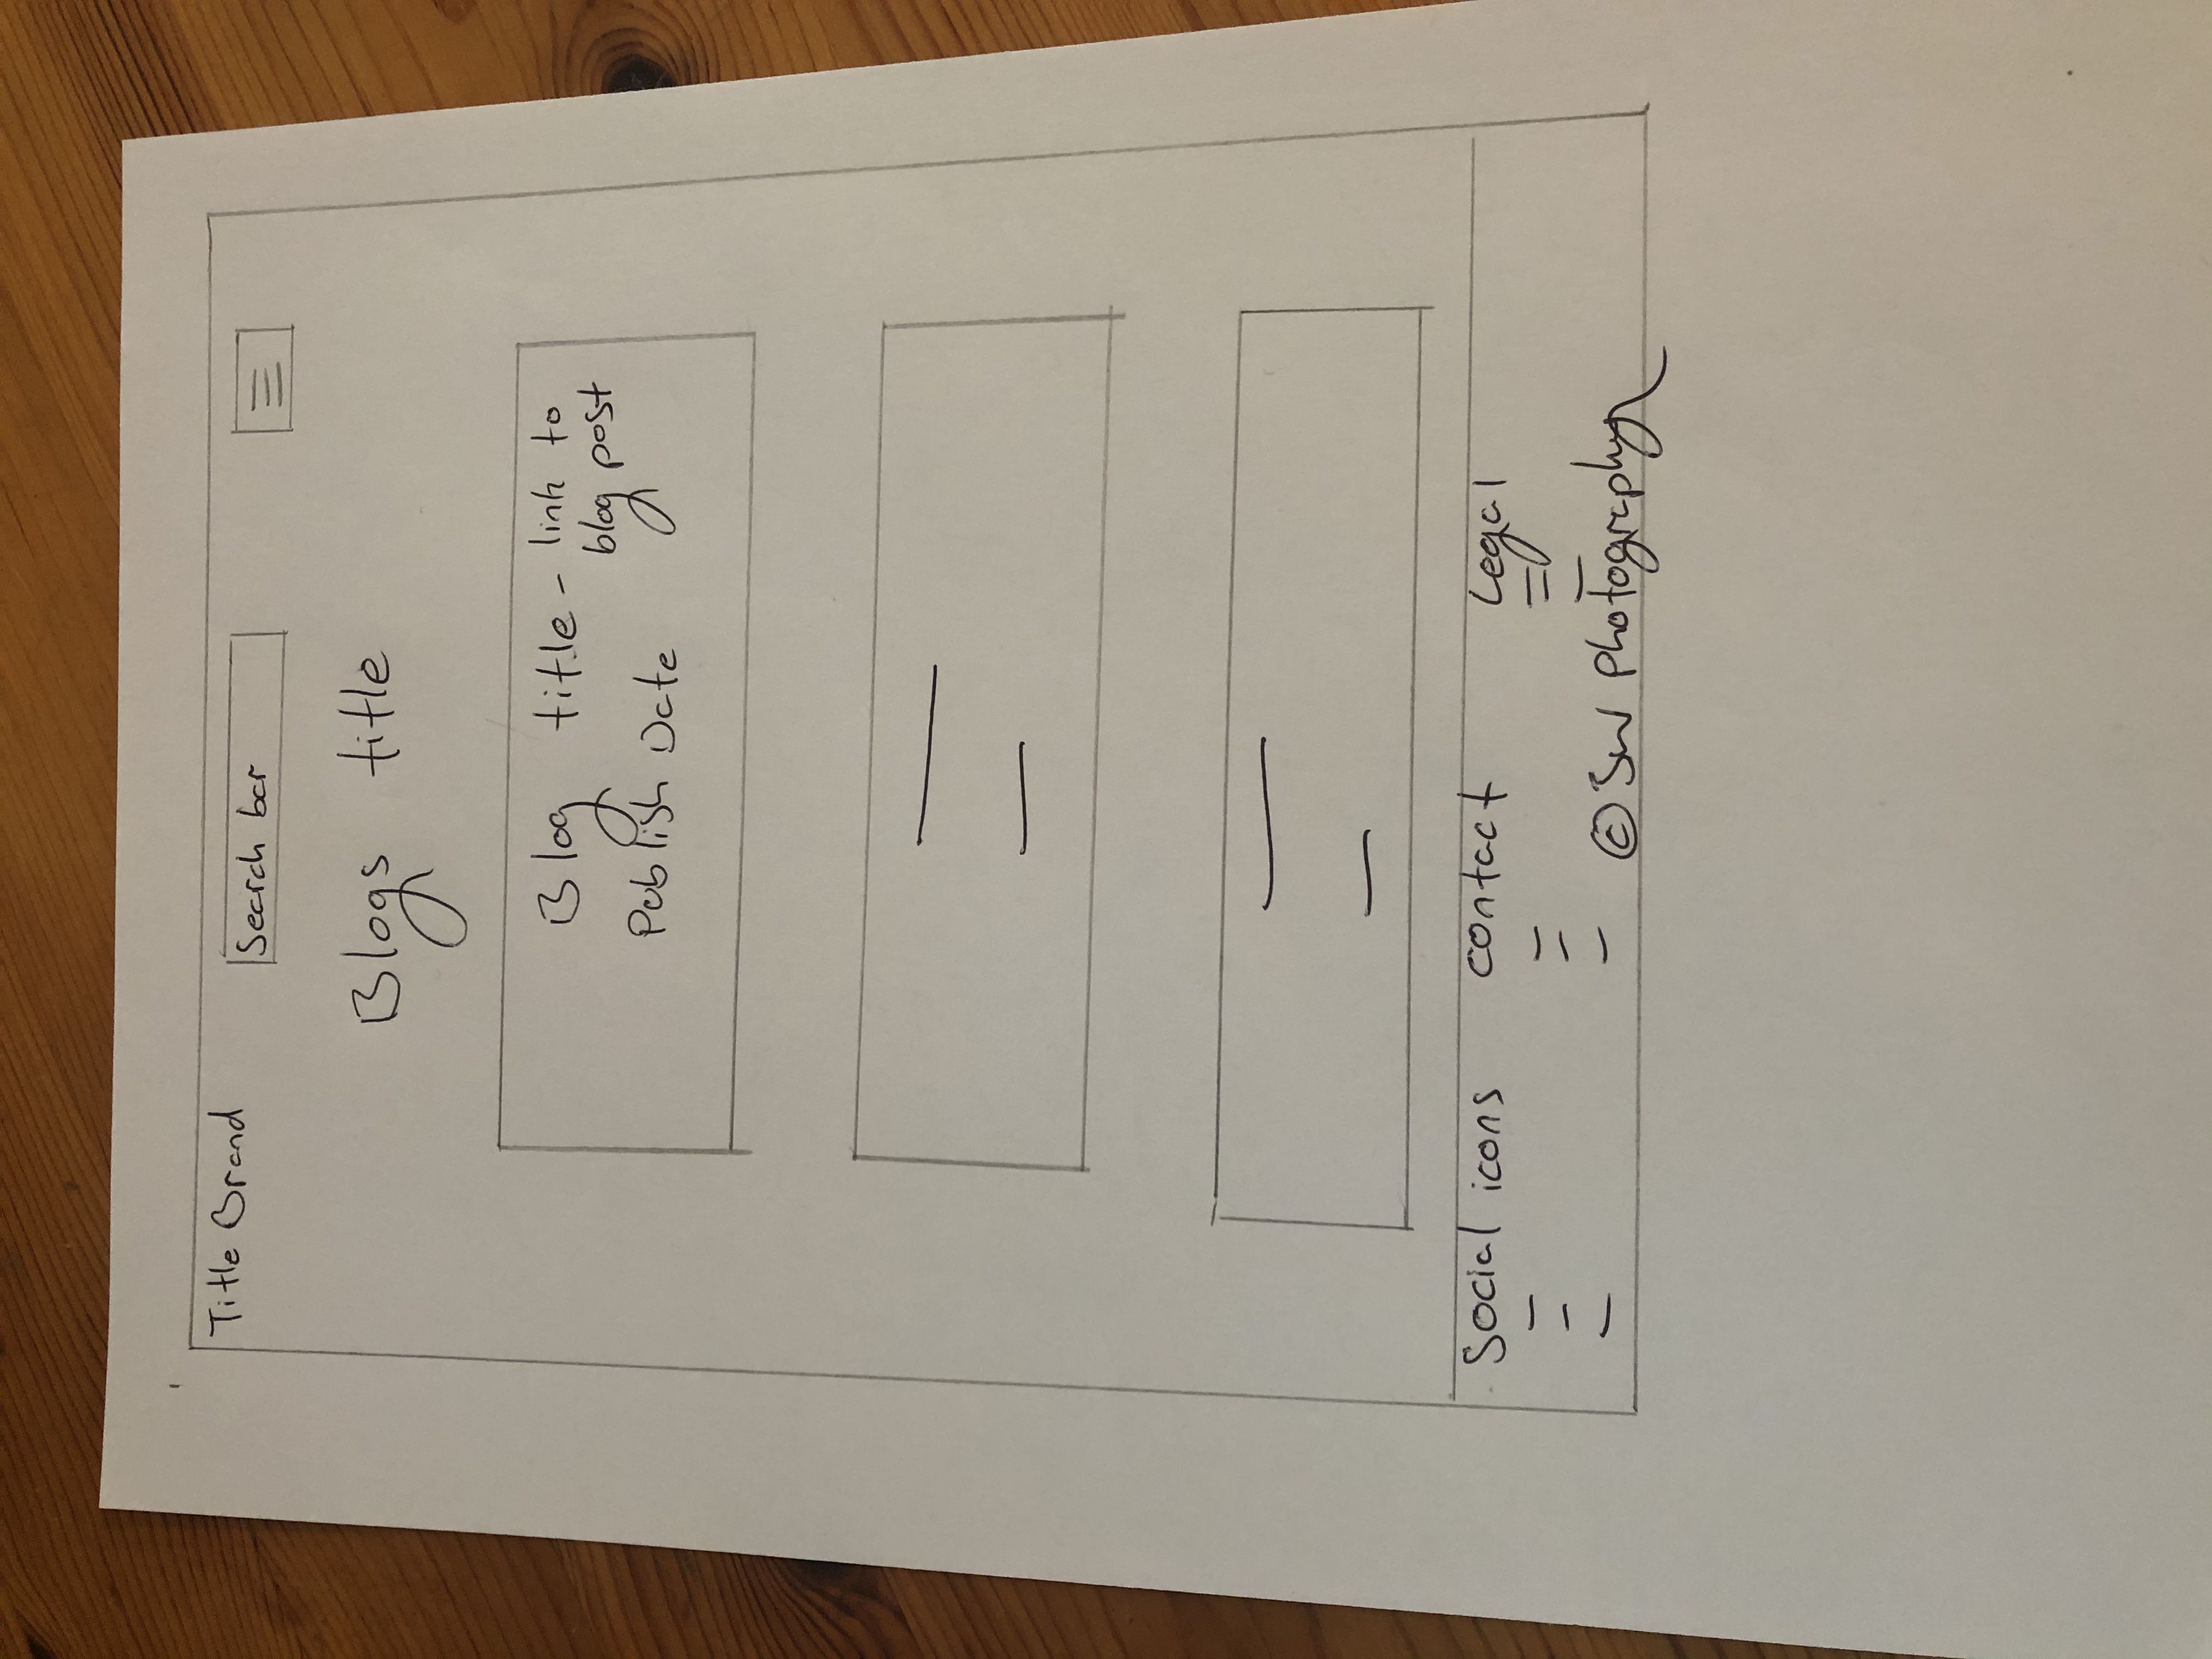 Title Brand
Search bar
Blogs title
Blog title - link to
blog post
Publish Date
Social icons
contact
Legal
© SW Photography